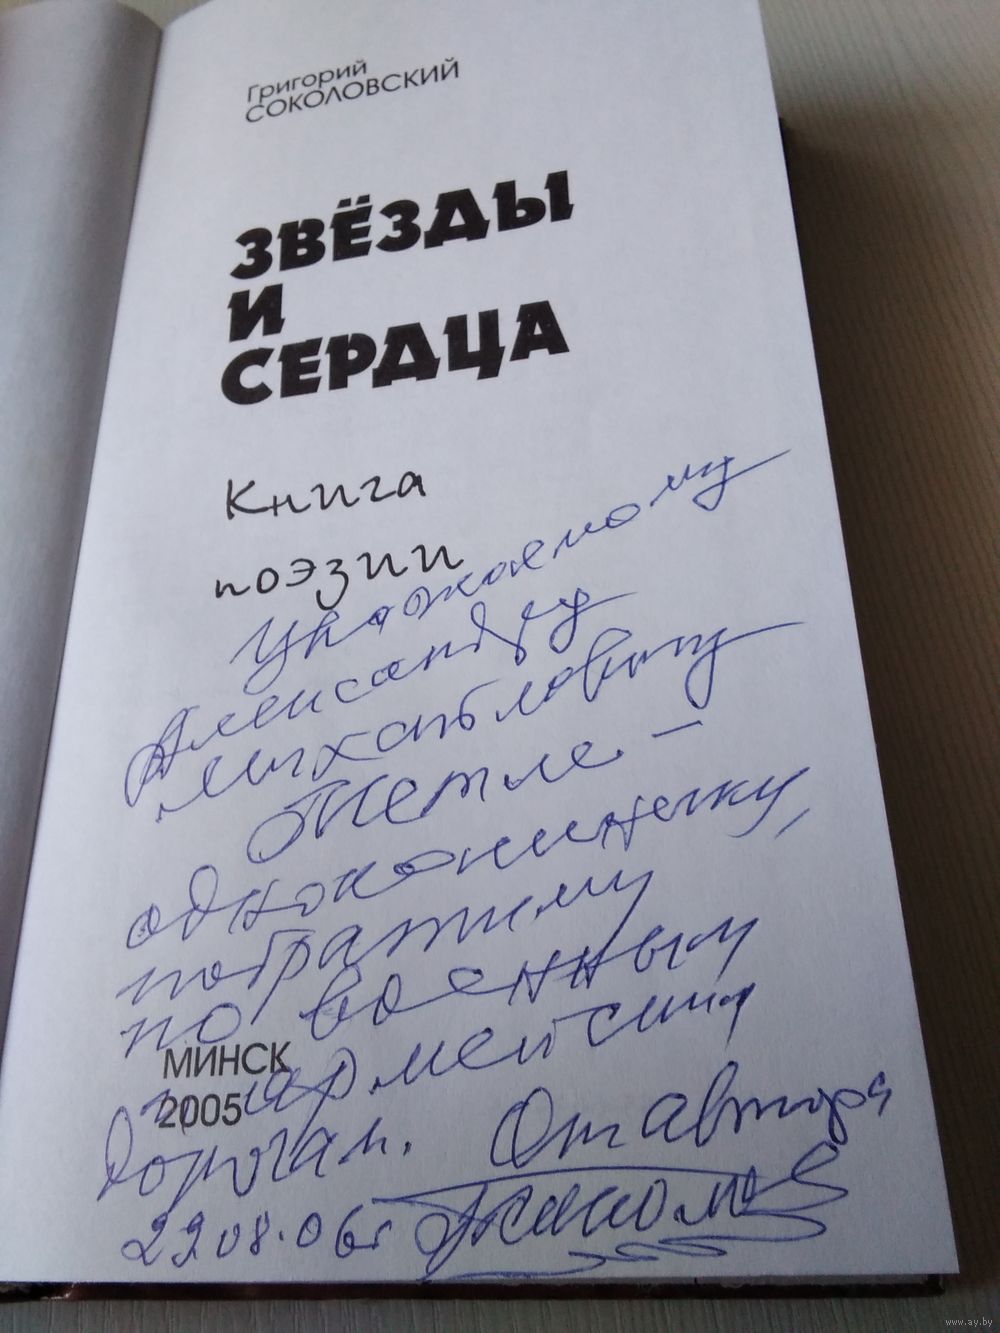 Григорий
СОКОЛОВСКИЙ
ЗВЁЗДЫ
И
СЕРДЦА
Книга
поэзии
Уважаемому
Александру
Михайловичу
однокашнику,
побратиму
по военным
МИНСК
и армейским
2005
дорогам. От автора
22.08.06г
www.ay.by